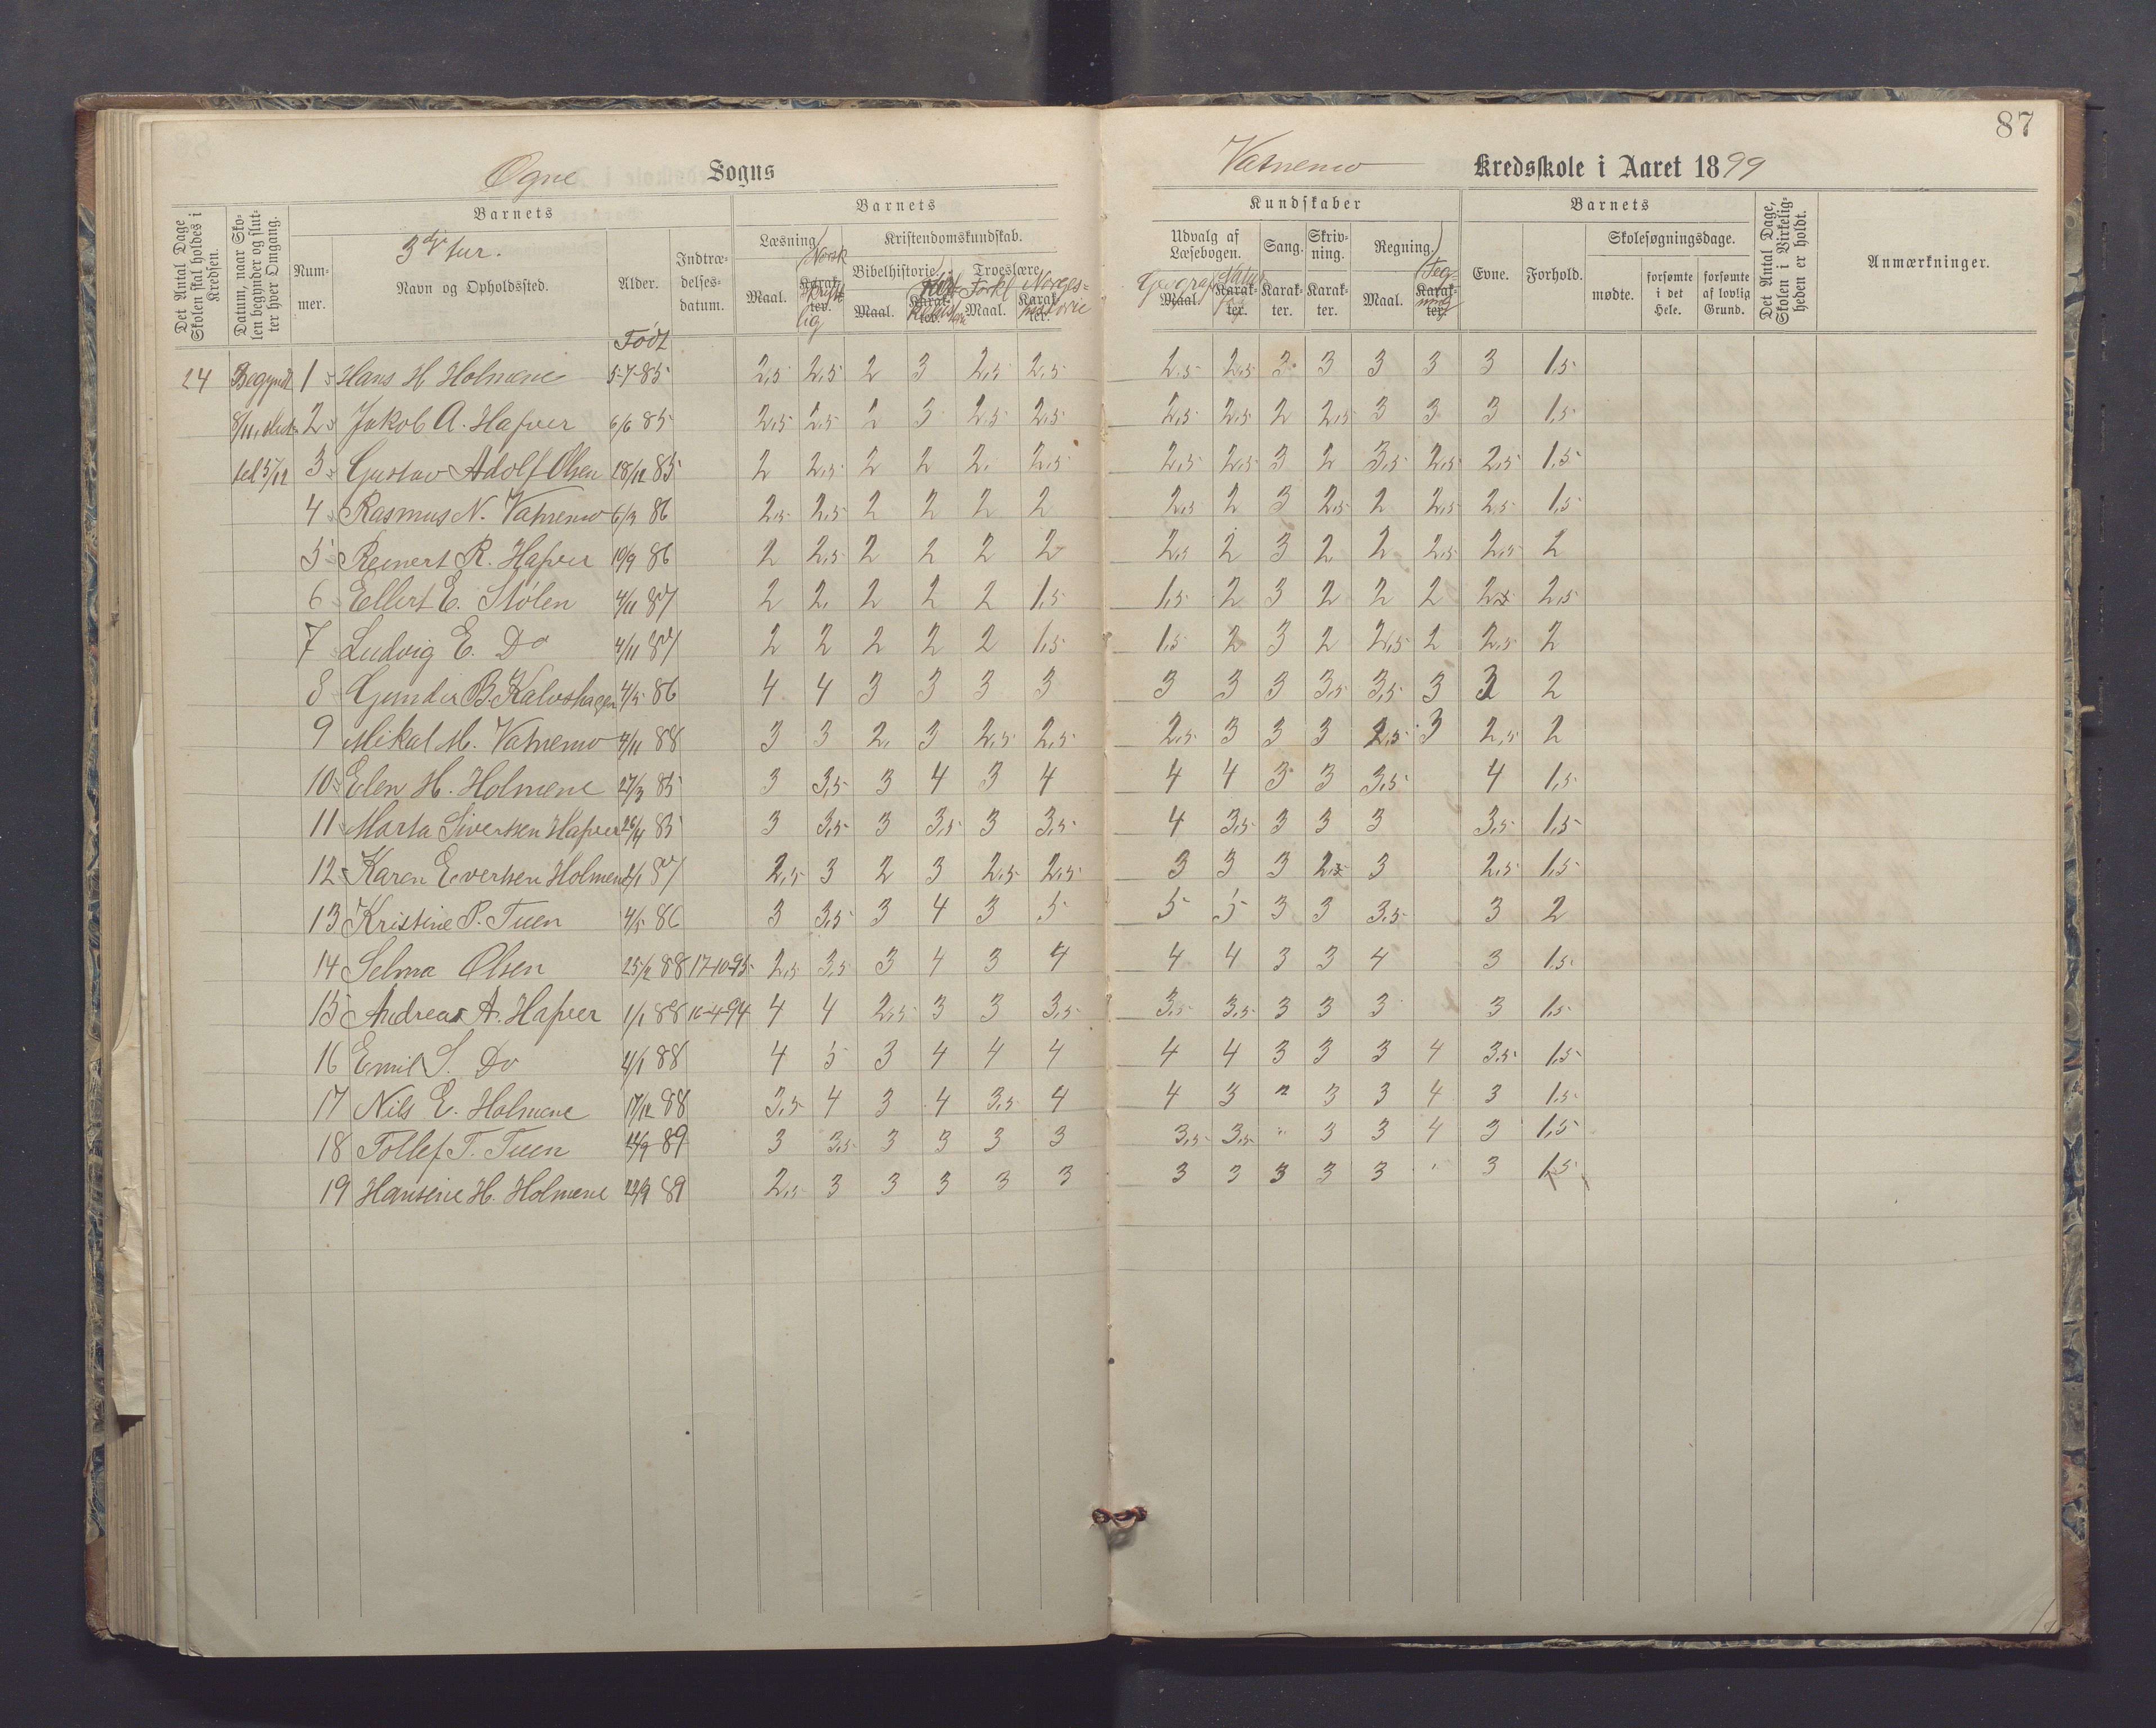 87
Ogne Sogns
Vatnemo Kredsskole i Aaret 1899
Det Antal Dage Skolen skal holdes i Kredsen.
Datum, naar Skolen begynder og slutter hver Omgang.
Barnets
Nummer.
3die tur.
Navn og Opholdssted.
Alder.
Født
Indtrædelsesdatum.
Barnets
Læsning
Norsk
Maal.
Karakter.
skriftlig
Kristendomskundskab.
Bibelhistorie.
Maal.
Karakter.
Troeslære
Forkl
Maal.
Norgeshistorie
Karakter.
Kundskaber
Udvalg af Læsebogen.
Geograf
Maal.
Naturfag
Karakter.
Sang.
Karakter.
Skrivning.
Karakter.
Regning.
Maal.
Tegning
Karakter.
Barnets
Evne.
Forhold.
Skolesøgningsdage.
mødte.
forsømte i det Hele.
forsømte af lovlig Grund.
Det Antal Dage, Skolen i Virkeligheden er holdt.
Anmærkninger.
24 Begyndt 1 Hans H Holmene 5-7-85 2,5 2,5 2 3 2,5 2,5 2,5 2,5 3 3 3 3 3 1,5
8/11, slut 2 Jakob A. Hapver 6/6 85 2,5 2,5 2 3 2,5 2,5 2,5 2,5 2 2,5 3 3 3 1,5
ted 5/12 3 Gustav Adolf Olsen 18/12 85 2 2,5 2 2 2. 2,5 2,5 2,5 3 2 3,5 2,5 2,5 1,5
4 Rasmus N. Vatnemo 6/3 86 2,5 2,5 2 2 2 2 2,5 2 3 2,5 2 2,5 2,5 1,5
5 Reinert R. Hapver 10/9 86 2 2,5 2 2 2 2 2,5 2 3 2 2 2,5 2,5 2
6 Ellert E. Stølen 4/11 87 2 2. 2 2 2 1,5 1,5 2 3 2 2 2 2 2,5
7 Ludvig E. Do 4/11 87 2 2 2 2 2 1,5 1,5 2 3 2 2,5 2 2,5 2
8 Gunder B. Kalvshagen 4/5 86 4 4 3 3 3 3 3 3 3 3,5 3,5 3 3 2
9 Mikal M. Vatnemo 4/11 88 3 3 2. 3 2,5 2,5 2,5 3 3 3 2,5 3 2,5 2
10 Elen H. Holmene 27/3 85 3 3,5 3 4 3 4 4 4 3 3 3,5 4 1,5
11 Marta Sivertsen Hapver 26/4 85 3 3,5 3 3,5 3 3,5 4 3,5 3 3 3 3,5 1,5
12 Karen Evertsen Holmene 2/1 87 2,5 3 2 3 2,5 2,5 3 3 3 2,5 3 2,5 1,5
13 Kristine P. Tuen 4/5 86 3 3,5 3 4 3 5 5 5 3 3 3,5 3 2
14 Selma Olsen 25/2 88 17-10-95 2,5 3,5 3 4 3 4 4 4 3 3 4 3 1,5
15 Andreas A. Hapver 1/1 88 16-4-94 4 4 2,5 3 3 3,5 3,5 3,5 3 3 3 3 1,5
16 Emil S. Do 4/1 88 4 5 3 4 4 4 4 4 3 3 3 4 3,5 1,5
17 Nils E. Holmene 17/12 88 3,5 4 3 4 3,5 4 4 3 " 3 3 4 3 1,5
18 Tollef T. Tuen 12/9 89 3 3,5 3 3 3 3 3,5 3,5 " 3 3 4 3 1,5
19 Hansine H. Holmene 22/9 89 2,5 3 3 3 3 3 3 3 3 3 3 " 3 1,5